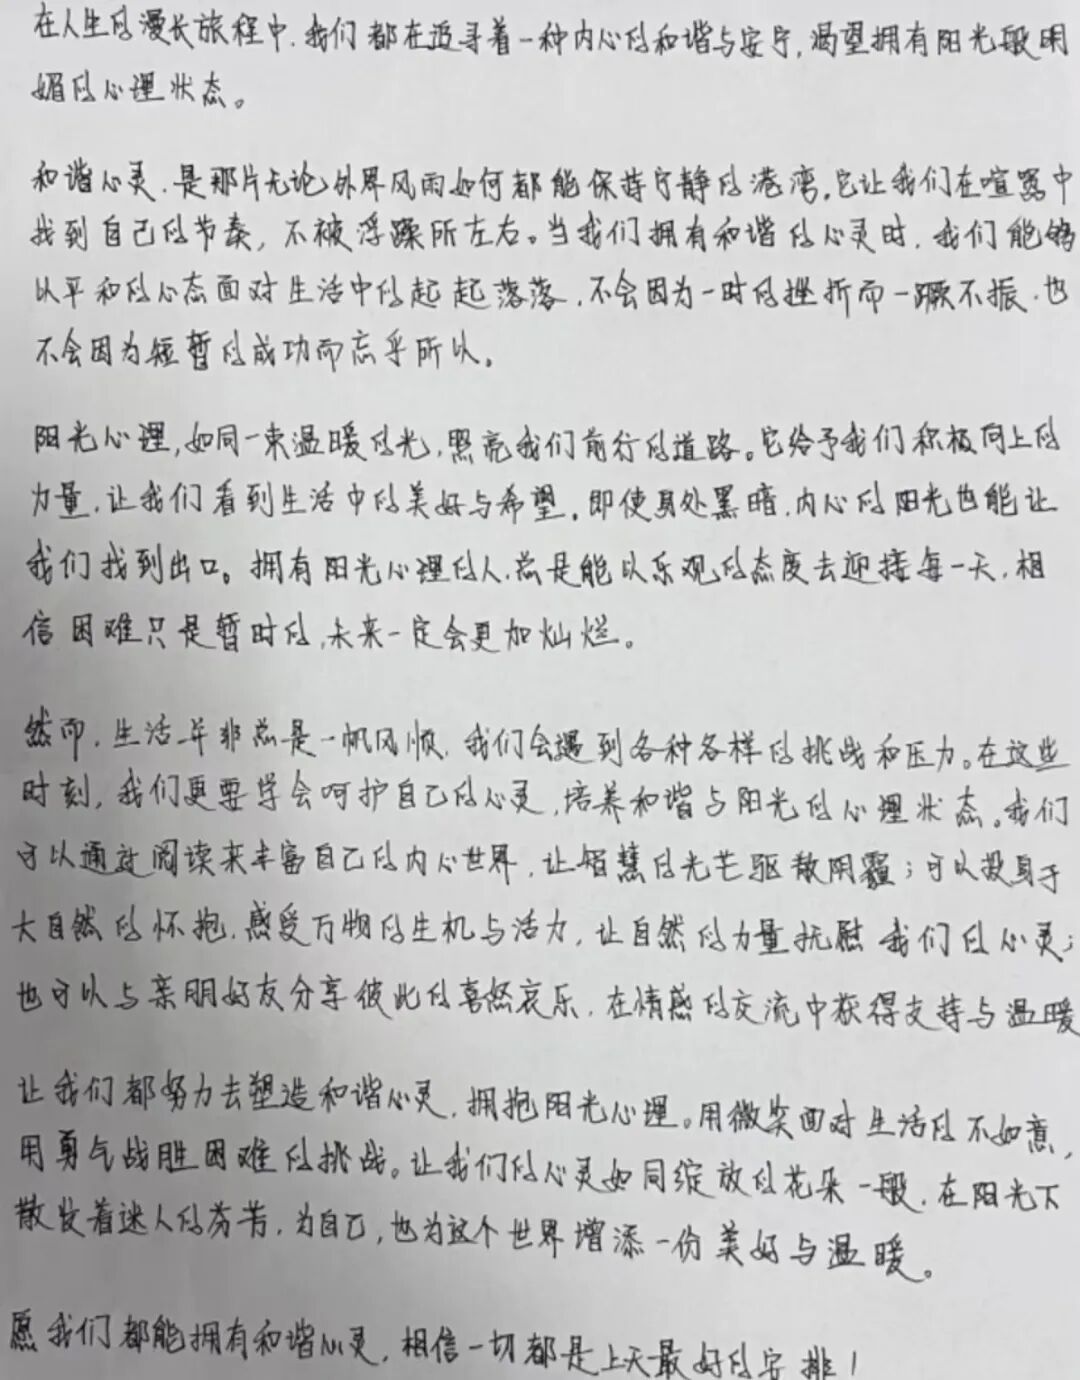 在人生的漫长旅程中,我们都在追寻着一种内心的和谐与安宁,渴望拥有阳光般明
媚的心理状态。
和谐心灵,是那片无论外界风雨如何都能保持宁静的港湾。它让我们在喧嚣中
找到自己的节奏,不被浮躁所左右。当我们拥有和谐的心灵时,我们能够
以平和的心态面对生活中的起起落落,不会因为一时的挫折而一蹶不振,也
不会因为短暂的成功而忘乎所以。
阳光心理,如同一束温暖的光,照亮我们前行的道路。它给予我们积极向上的
力量,让我们看到生活中的美好与希望。即使身处黑暗,内心的阳光也能让
我们找到出口。拥有阳光心理的人,总是能以乐观的态度去迎接每一天,相
信困难只是暂时的,未来一定会更加灿烂。
然而,生活并非总是一帆风顺,我们会遇到各种各样的挑战和压力。在这些
时刻,我们更要学会呵护自己的心灵,培养和谐与阳光的心理状态。我们
可以通过阅读来丰富自己的内心世界,让智慧的光芒驱散阴霾;可以投身于
大自然的怀抱,感受万物的生机与活力,让自然的力量抚慰我们的心灵;
也可以与亲朋好友分享彼此的喜怒哀乐,在情感的交流中获得支持与温暖
让我们都努力去塑造和谐心灵,拥抱阳光心理。用微笑面对生活的不如意,
用勇气战胜困难的挑战。让我们的心灵如同绽放的花朵一般,在阳光下
散发着迷人的芬芳,为自己,也为这个世界增添一份美好与温暖。
愿我们都能拥有和谐心灵,相信一切都是上天最好的安排!